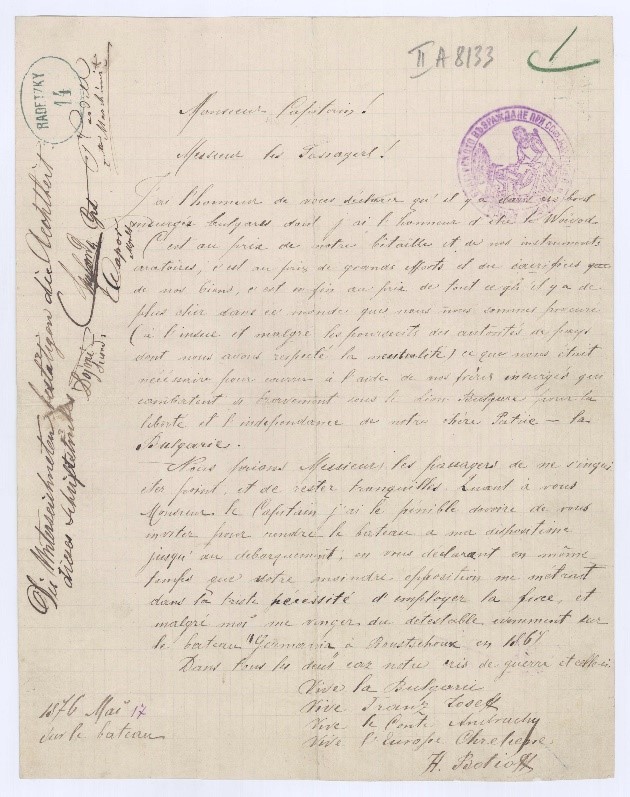 II A 8133
1
RADETZKY
14
Monsieur Capitain!
Messieur les Passagers!
J'ai l'honneur de vous déclarer qu'il y a dans ces bord
insurgés bulgares dont j'ai l'honneur d'être le Woivod.
C'est au prix de notre bétaille et de nos instruments
aratoires, c'est au prix de grands efforts et du sacrifices
de nos biens, c'est en fin au prix de tout ce qu'il y a de
plus cher dans ce monde que nous nous sommes procuré
(à l'insue et malgré les poursuits des autorités de pays
dont nous avons respecté la neutralité) ce que nous était
nécéssaire pour courrir à l'aide de nos frères insurgés qui
combattent si bravement sous le Lion Bulgare pour la
liberté et l'independance de notre chère Patrie – la
Bulgarie.
Nous prions Messieurs les passagers de ne s'inquieter
point, et de rester tranquilles. Quant à vous
Monsieur le Capitain j'ai le pénible devoire de vous
inviter pour rendre le bateau a ma disposition
jusqu'au debarquement, en vous déclarant en même
temps que votre moindre opposition me métrait
dans la triste nécéssité d'employer la force, et
malgré moi me venger du detestable evennment sur
le bateau "Germania à Roustschouk en 1867
Dans tous les deux cas notre cris de guerre est
Vive la Bulgarie
Vive Franz Josef
Vive le Conte Andrachy
Vive l'Europe Chretiene
H. Botioff
1876 Mai 17
sur le bateau
Die Unterzeichneten bestätigen die Aechtheit
dieses Schriftstückes